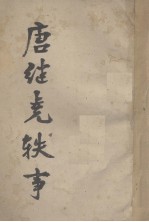 唐继尧轶事